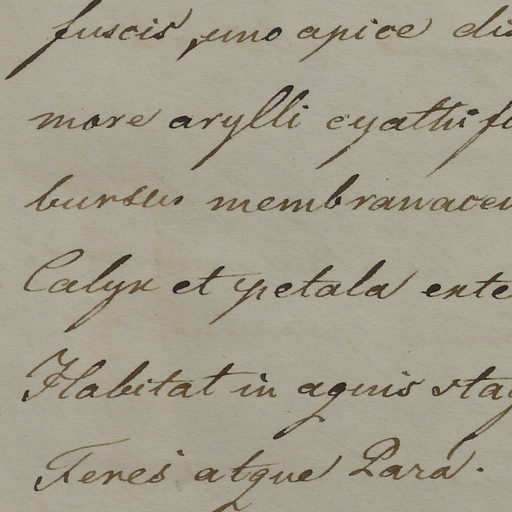 fuscis, uno apice dis
more arylli cyathi fo
bursu membranaceu
Calyx et petala exte
Habitat in aquis stag
Feres atque Pará.